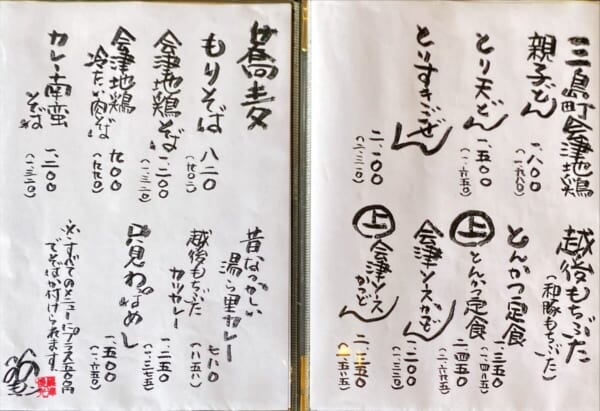 三島町会津地鶏
親子どん
一、八〇〇
(一、九八〇)
とり天どん
一、五〇〇
(一、六五〇)
とりすきごぜん
二、一〇〇
(二、三一〇)
越後もちぶた
(和豚もちぶた)
とんかつ定食
一、三五〇
(一、四八五)
上とんかつ定食
二、四五〇
会津ソースかつどん
上会津ソースかつどん
蕎麦
もりそば
八二〇
(九〇二)
会津地鶏そば
一、二〇〇
(一、三二〇)
会津地鶏
冷たい肉そば
九〇〇
(九九〇)
カレー南蛮
そば
一、二〇〇
(一、三二〇)
昔なつかしい
湯ら里カレー
七八〇
(八五八)
越後もちぶた
カツカレー
一、二五〇
(一、三七五)
只見わっぱめし
一、五〇〇
(一、六五〇)
※すべてのメニューにプラス五〇〇円
でそばが付けられます。